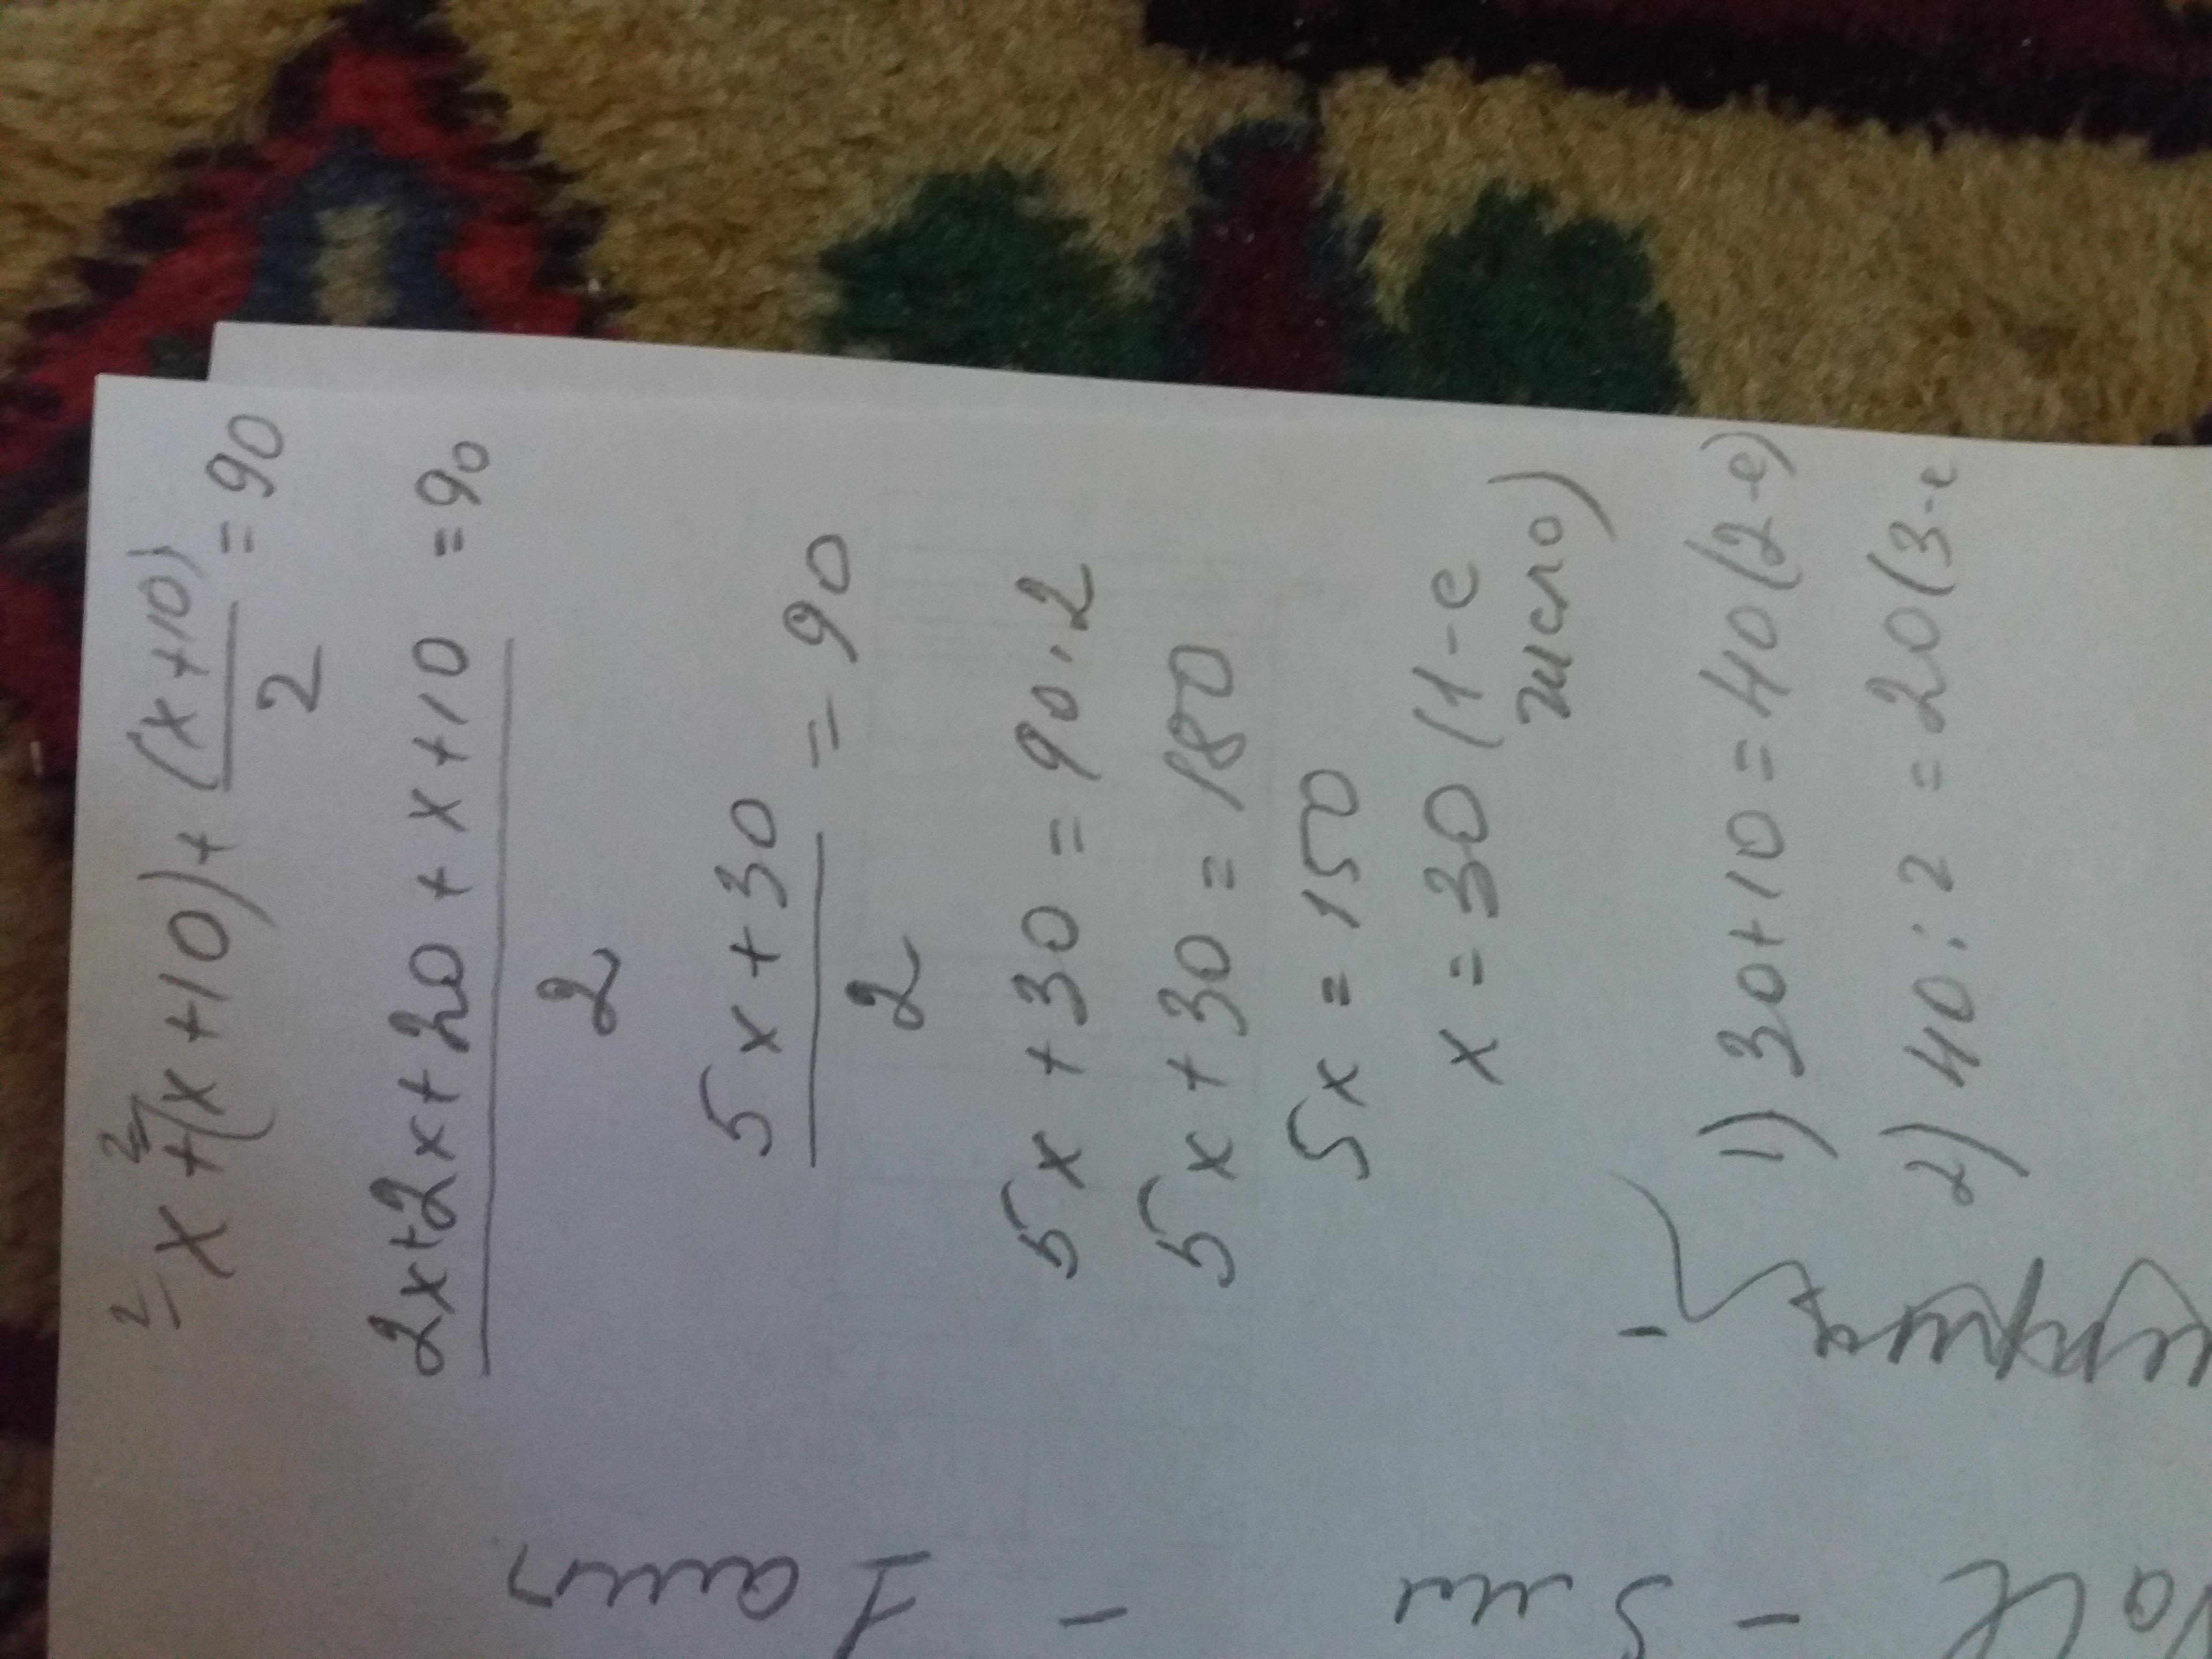 2 2
x+(x+10)+(x+10)/2=90
2x+2x+20+x+10/2=90
5x+30/2=90
5x+30=90·2
5x+30=180
5x=150
x=30 (1-е
число)
1) 30+10=40 (2-е)
2) 40:2=20 (3-е
1 амп
- 5 мл
-